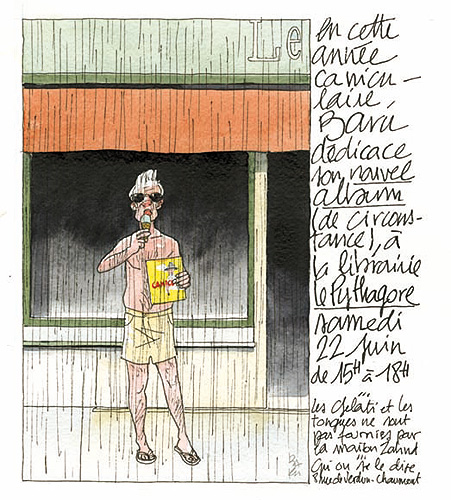 Le
En cette
année
canicu-
laire,
Baru
dédicace
son nouvel
album
(de circons-
tance), à
la librairie
le Pythagore
samedi
22 juin
de 15H à 18H
Les Gelati et les
tongues ne sont
pas fournies par
la maison
Qu'on se le dise
8 rue de Verdun - Chaumont